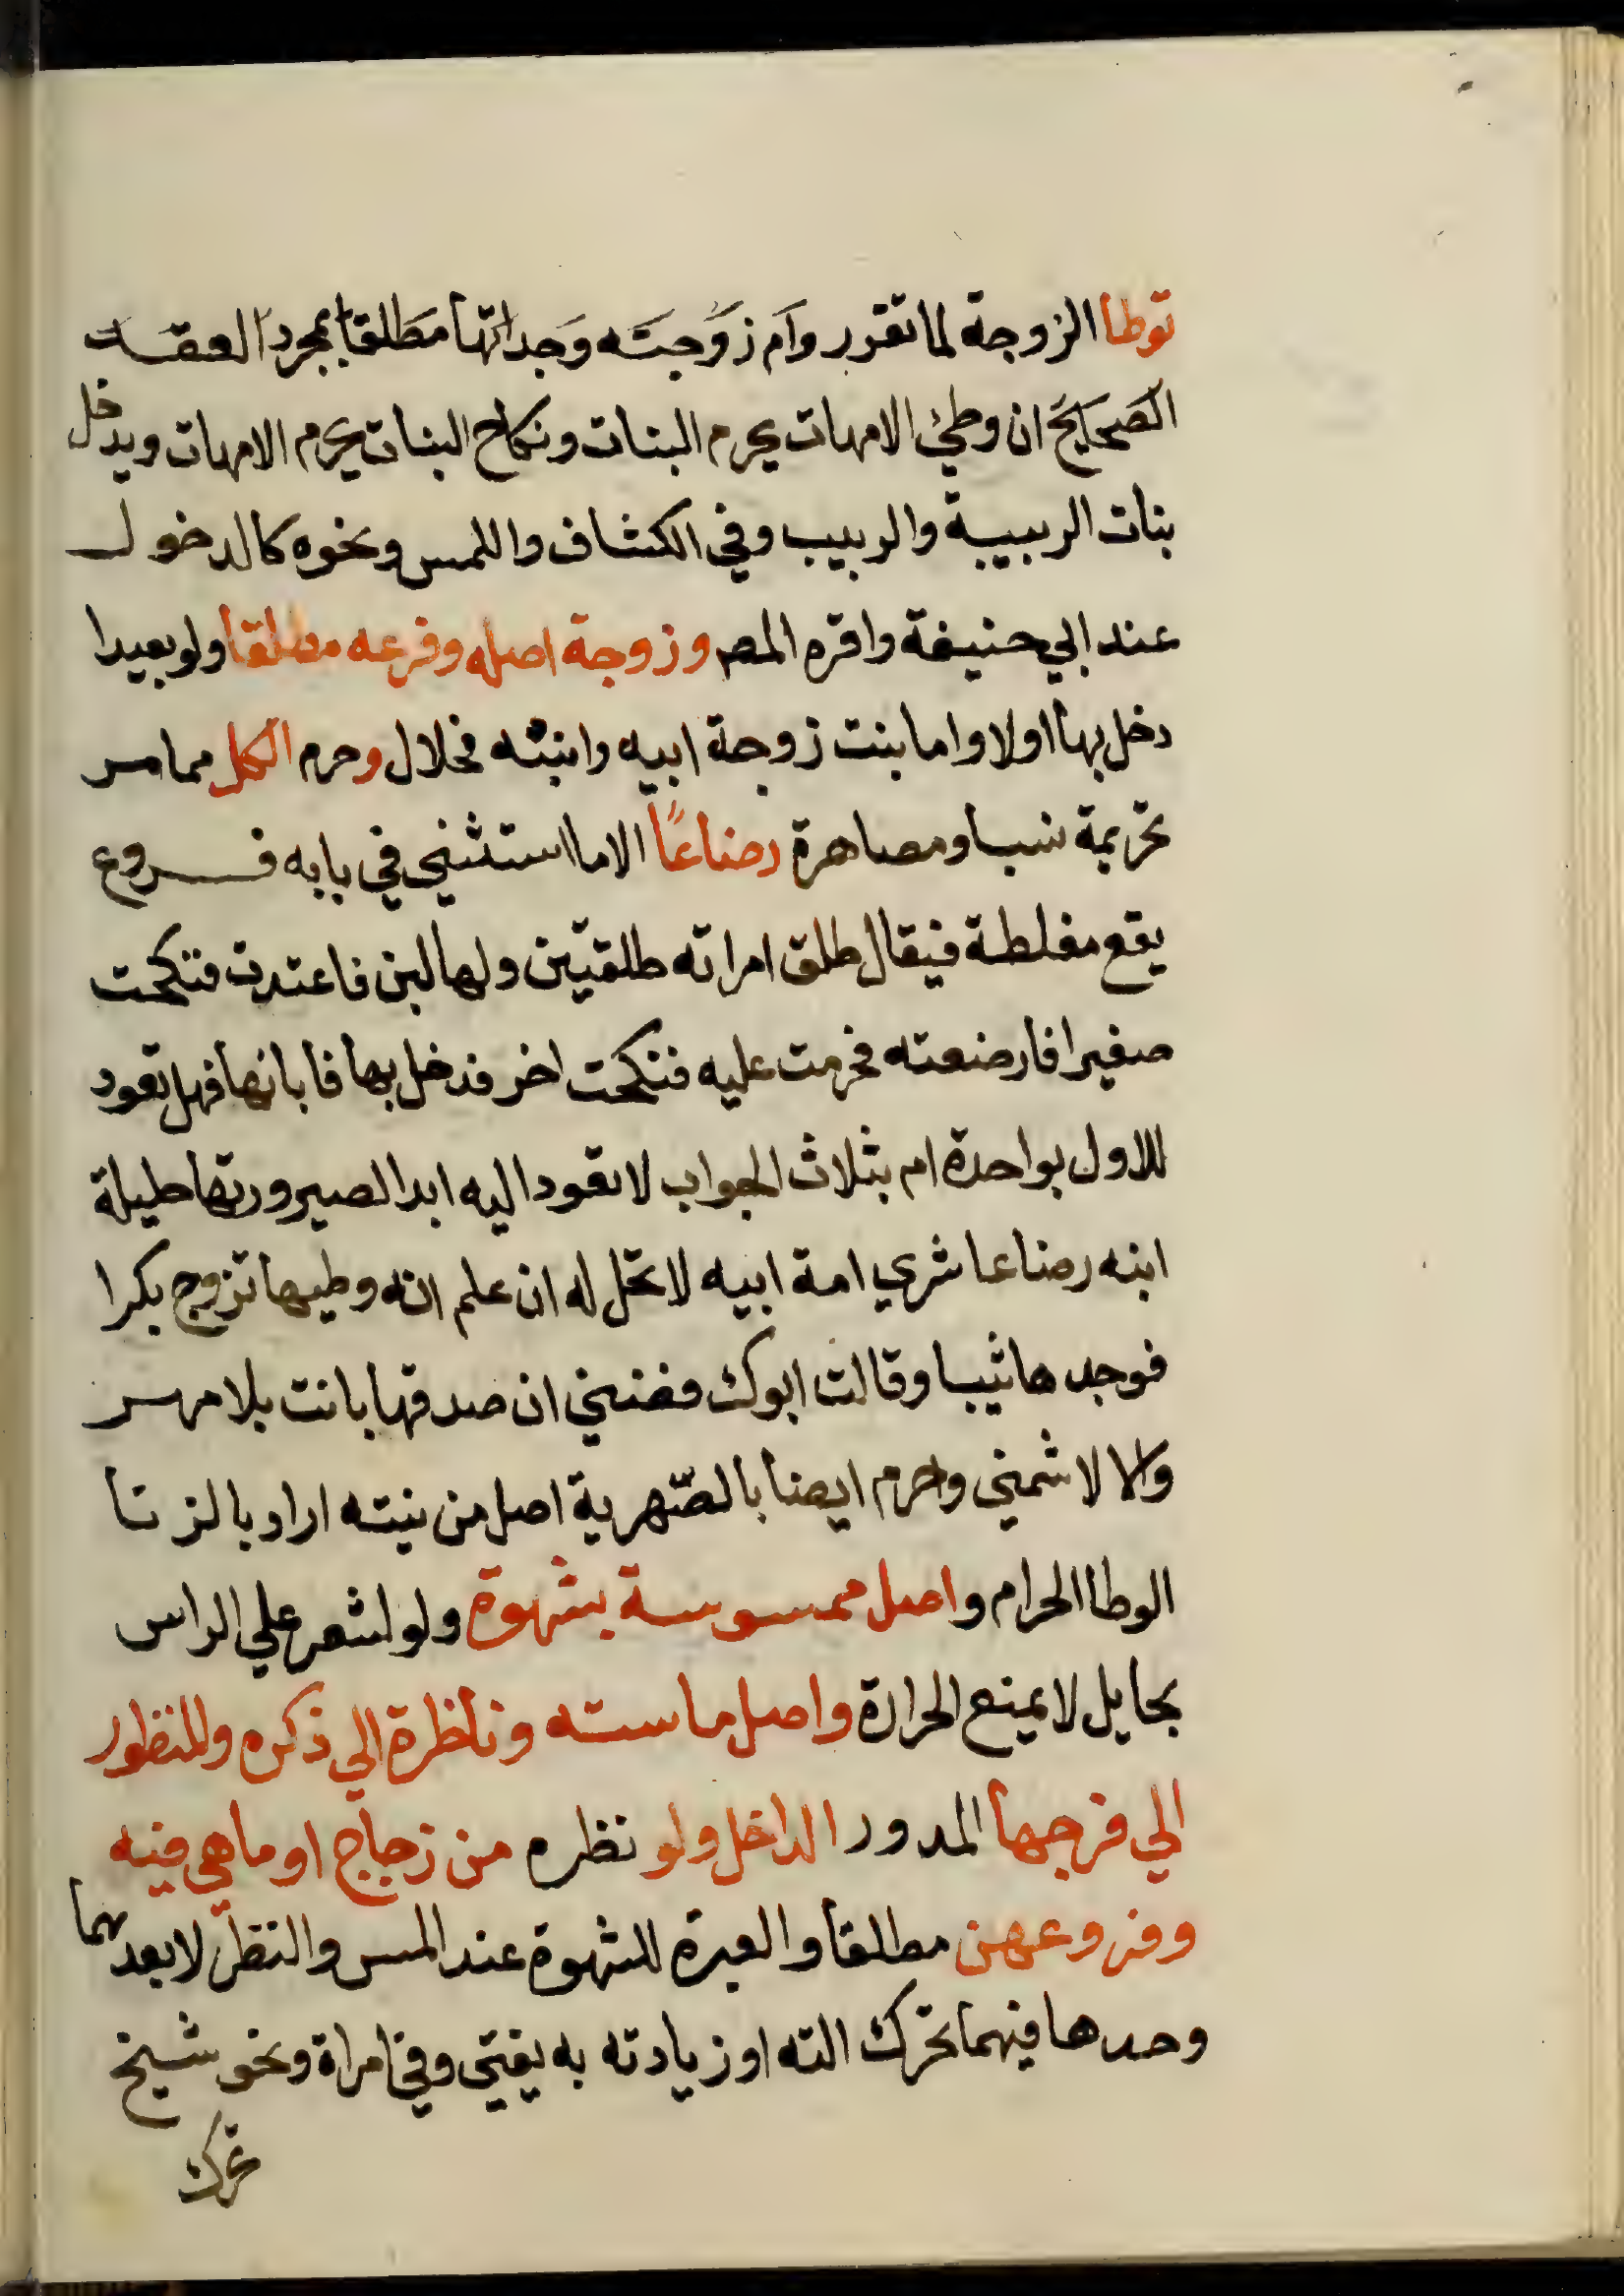 توطا الزوجة لما تقرر وام زوجته وجداتها مطلقا بمجرد العقد
الصحايح ان وطئ الامهات يحرم البنات ونكاح البنات يحرم الامهات ويدخل
بنات الربيبة والربيب وفي الكشاف واللمس ونحوه كالدخول
عند ابي حنيفة واقره المصر وزوجة اصله وفرعه مطلقا ولو بعيدا
دخل بها اولا واما بنت زوجة ابيه وابنته فحلال وحرم الكل مما مر
تحريمة نسبا ومصاهرة رضاعًا الا ما استثني في بابه فروع
يقع مغلطة فيقال طلق امراته طلقتين ولها لبن فاعتدت فنكحت
صغيرا فارضعته فحرمت عليه فنكحت اخر فدخل بها فابانها فهل تعود
للاول بواحدة ام بثلاث الجواب لا تعود اليه ابدا لصيرورتها حليلة
ابنه رضاعا شري امة ابيه لا تحل له ان علم انه وطيها تزوج بكرا
فوجدها ثيبا وقالت ابوك فضني ان صدقها بانت بلا مهر
والا لا شمني وحرم ايضا بالصّهرية اصل من نيته اراد بالزنا
الوطا الحرام واصل ممسوسة بشهوة ولو لشعر علي الراس
بحايل لا يمنع الحرارة واصل ماسته وناظرة الي ذكره والمنظور
الي فرجها المدور الداخل ولو نظره من زجاج او ما هي فيه
وفروعهن مطلقا والعبرة للشهوة عند المس والنظر لا بعدهما
وحدها فيهما تحرك الته او زيادته به يفتي وفي امراة ونحو شيخ
تحرك